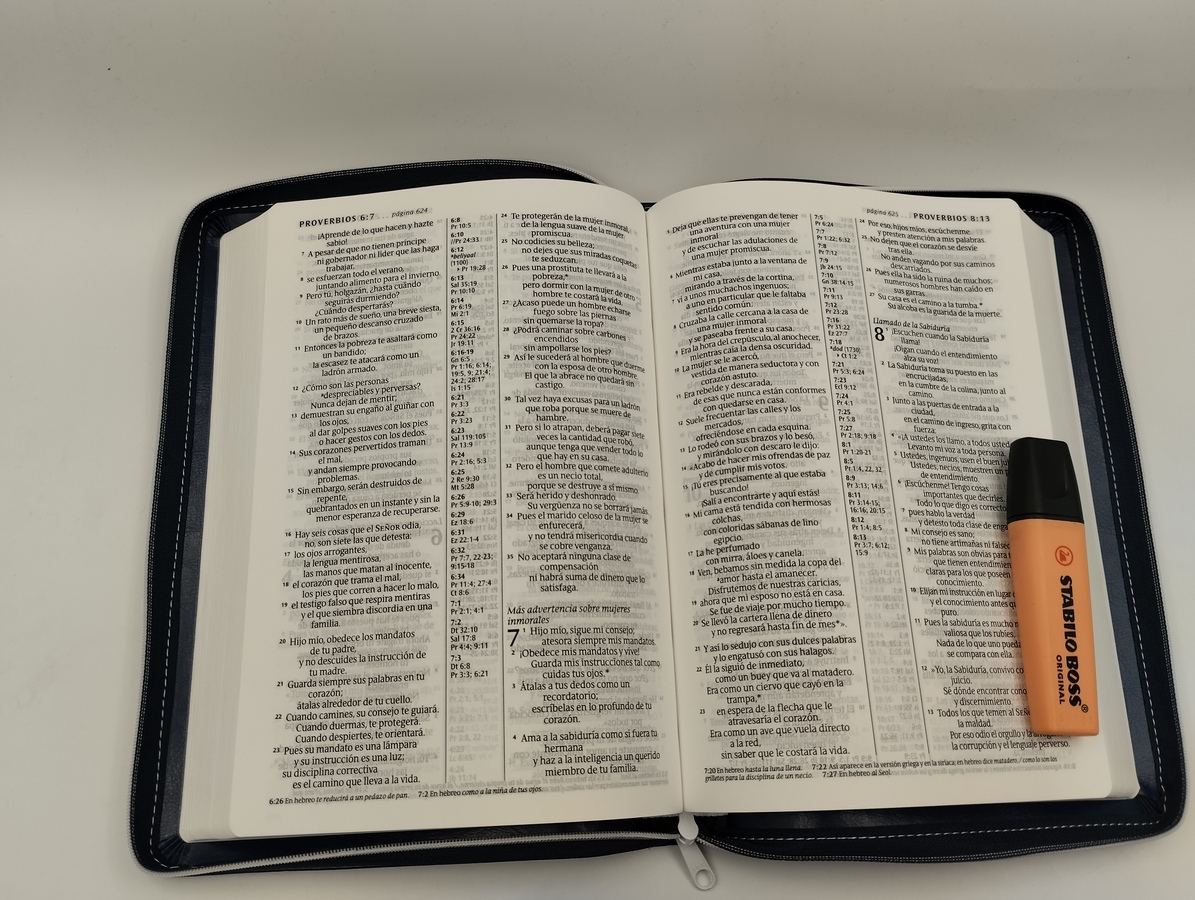 PROVERBIOS 6:7 . . . página 624
¡Aprende de lo que hacen y hazte
sabio!
7 A pesar de que no tienen príncipe
ni gobernador ni líder que las haga
trabajar,
8 se esfuerzan todo el verano,
juntando alimento para el invierno.
9 Pero tú, holgazán, ¿hasta cuándo
seguirás durmiendo?
¿Cuándo despertarás?
10 Un rato más de sueño, una breve siesta,
un pequeño descanso cruzado
de brazos.
11 Entonces la pobreza te asaltará como
un bandido;
la escasez te atacará como un
ladrón armado.
12 ¿Cómo son las personas
*despreciables y perversas?
Nunca dejan de mentir;
13 demuestran su engaño al guiñar con
los ojos,
al dar golpes suaves con los pies
o hacer gestos con los dedos.
14 Sus corazones pervertidos traman
el mal,
y andan siempre provocando
problemas.
15 Sin embargo, serán destruidos de
repente,
quebrantados en un instante y sin la
menor esperanza de recuperarse.
16 Hay seis cosas que el SEÑOR odia,
no, son siete las que detesta:
17 los ojos arrogantes,
la lengua mentirosa,
las manos que matan al inocente,
18 el corazón que trama el mal,
los pies que corren a hacer lo malo,
19 el testigo falso que respira mentiras
y el que siembra discordia en una
familia.
20 Hijo mío, obedece los mandatos
de tu padre,
y no descuides la instrucción de
tu madre.
21 Guarda siempre sus palabras en tu
corazón;
átalas alrededor de tu cuello.
22 Cuando camines, su consejo te guiará.
Cuando duermas, te protegerá.
Cuando despiertes, te orientará.
23 Pues su mandato es una lámpara
y su instrucción es una luz;
su disciplina correctiva
es el camino que lleva a la vida.
6:8
Pr 10:5
6:10
//Pr 24:33
6:12
*beliyaal
(1100)
Pr 19:28
6:13
Sal 35:19
Pr 10:10
6:14
Pr 6:19
Mi 2:1
6:15
2 Cr 36:16
Pr 24:22
Jr 19:11
6:16-19
Gn 6:5
Pr 1:16; 6:14;
19:5, 9; 21:4;
24:2; 28:17
Is 1:15
6:21
Pr 3:3
6:22
Pr 3:23
6:23
Sal 119:105
Pr 13:9
6:24
Pr 2:16; 5:3
6:25
2 Re 9:30
Mt 5:28
6:26
Pr 5:9-10; 29:3
6:29
Ez 18:6
6:31
Ex 22:1-4
6:32
Pr 7:7, 22-23;
9:15-18
6:34
Pr 11:4; 27:4
Ct 8:6
7:1
Pr 2:1; 4:1
7:2
Dt 32:10
Sal 17:8
Pr 4:4; 9:11
7:3
Dt 6:8
Pr 3:3; 6:21
24 Te protegerán de la mujer inmoral,
de la lengua suave de la mujer
promiscua.
25 No codicies su belleza;
no dejes que sus miradas coquetas
te seduzcan.
26 Pues una prostituta te llevará a la
pobreza,*
pero dormir con la mujer de otro
hombre te costará la vida.
27 ¿Acaso puede un hombre echarse
fuego sobre las piernas
sin quemarse la ropa?
28 ¿Podrá caminar sobre carbones
encendidos
sin ampollarse los pies?
29 Así le sucederá al hombre que duerme
con la esposa de otro hombre.
El que la abrace no quedará sin
castigo.
30 Tal vez haya excusas para un ladrón
que roba porque se muere de
hambre.
31 Pero si lo atrapan, deberá pagar siete
veces la cantidad que robó,
aunque tenga que vender todo lo
que hay en su casa.
32 Pero el hombre que comete adulterio
es un necio total,
porque se destruye a sí mismo.
33 Será herido y deshonrado.
Su vergüenza no se borrará jamás.
34 Pues el marido celoso de la mujer se
enfurecerá,
y no tendrá misericordia cuando
se cobre venganza.
35 No aceptará ninguna clase de
compensación
ni habrá suma de dinero que lo
satisfaga.
Más advertencia sobre mujeres
inmorales
7 1 Hijo mío, sigue mi consejo;
atesora siempre mis mandatos.
2 ¡Obedece mis mandatos y vive!
Guarda mis instrucciones tal como
cuidas tus ojos.*
3 Átalas a tus dedos como un
recordatorio;
escríbelas en lo profundo de tu
corazón.
4 Ama a la sabiduría como si fuera tu
hermana
y haz a la inteligencia un querido
miembro de tu familia.
6:26 En hebreo te reducirá a un pedazo de pan. 7:2 En hebreo como a la niña de tus ojos.
página 625 . . . PROVERBIOS 8:13
5 Deja que ellas te prevengan de tener
una aventura con una mujer
inmoral
y de escuchar las adulaciones de
una mujer promiscua.
6 Mientras estaba junto a la ventana de
mi casa,
mirando a través de la cortina,
7 vi a unos muchachos ingenuos;
a uno en particular que le faltaba
sentido común.
8 Cruzaba la calle cercana a la casa de
una mujer inmoral
y se paseaba frente a su casa.
9 Era la hora del crepúsculo, al anochecer,
mientras caía la densa oscuridad.
10 La mujer se le acercó,
vestida de manera seductora y con
corazón astuto.
11 Era rebelde y descarada,
de esas que nunca están conformes
con quedarse en casa.
12 Suele frecuentar las calles y los
mercados,
ofreciéndose en cada esquina.
13 Lo rodeó con sus brazos y lo besó,
y mirándolo con descaro le dijo:
14 «Acabo de hacer mis ofrendas de paz
y de cumplir mis votos.
15 ¡Tú eres precisamente al que estaba
buscando!
¡Salí a encontrarte y aquí estás!
16 Mi cama está tendida con hermosas
colchas,
con coloridas sábanas de lino
egipcio.
17 La he perfumado
con mirra, áloes y canela.
18 Ven, bebamos sin medida la copa del
*amor hasta el amanecer.
Disfrutemos de nuestras caricias,
19 ahora que mi esposo no está en casa.
Se fue de viaje por mucho tiempo.
20 Se llevó la cartera llena de dinero
y no regresará hasta fin de mes*».
21 Y así lo sedujo con sus dulces palabras
y lo engatusó con sus halagos.
22 Él la siguió de inmediato,
como un buey que va al matadero.
Era como un ciervo que cayó en la
trampa,*
23 en espera de la flecha que le
atravesaría el corazón.
Era como un ave que vuela directo
a la red,
sin saber que le costará la vida.
7:5
Pr 6:24
7:7
Pr 1:22; 6:32
7:8
Pr 7:12
7:9
Jb 24:15
7:10
Gn 38:14-15
7:11
Pr 9:13
7:12
Pr 23:28
7:16
Pr 31:22
Ez 27:7
7:18
*dod (1730)
Ct 1:2
7:21
Pr 5:3; 6:24
7:23
Ecl 9:12
7:24
Pr 4:1
7:25
Pr 5:8
7:27
Pr 2:18; 9:18
8:1
Pr 1:20-21
8:5
Pr 1:4, 22, 32
8:9
Pr 3:13; 14:6
8:11
Pr 3:14-15;
16:16; 20:15
8:12
Pr 1:4; 8:5
8:13
Pr 3:7; 6:12;
15:9
24 Por eso, hijos míos, escúchenme
y presten atención a mis palabras.
25 No dejen que el corazón se desvíe
tras ella.
No anden vagando por sus caminos
descarriados.
26 Pues ella ha sido la ruina de muchos;
numerosos hombres han caído en
sus garras.
27 Su casa es el camino a la tumba.*
Su alcoba es la guarida de la muerte.
Llamado de la Sabiduría
8 1 ¡Escuchen cuando la Sabiduría
llama!
¡Oigan cuando el entendimiento
alza su voz!
2 La Sabiduría toma su puesto en las
encrucijadas,
en la cumbre de la colina, junto al
camino.
3 Junto a las puertas de entrada a la
ciudad,
en el camino de ingreso, grita con
fuerza:
4 «¡A ustedes los llamo, a todos ustedes
Levanto mi voz a toda persona.
5 Ustedes, ingenuos, usen el buen
Ustedes, necios, muestren un
de entendimiento.
6 ¡Escúchenme! Tengo cosas
importantes que decirles.
Todo lo que digo es correcto
7 pues hablo la verdad
y detesto toda clase de
8 Mi consejo es sano;
no tiene artimañas ni
9 Mis palabras son obvias para
que tienen entendimien
claras para los que poseen
conocimiento.
10 Elijan mi instrucción en lugar
y el conocimiento antes
puro.
11 Pues la sabiduría es mucho
valiosa que los rubíes.
Nada de lo que uno pueda
se compara con ella.
12 »Yo, la Sabiduría, convivo
juicio.
Sé dónde encontrar
y discernimiento.
13 Todos los que temen al
la maldad.
Por eso odio el orgullo y la
la corrupción y el lenguaje perverso.
7:20 En hebreo hasta la luna llena. 7:22 Así aparece en la versión griega y en la siríaca; en hebreo dice matadero, / como lo son los
grilletes para la disciplina de un necio. 7:27 En hebreo al Seol.
STABILO BOSS®
ORIGINAL